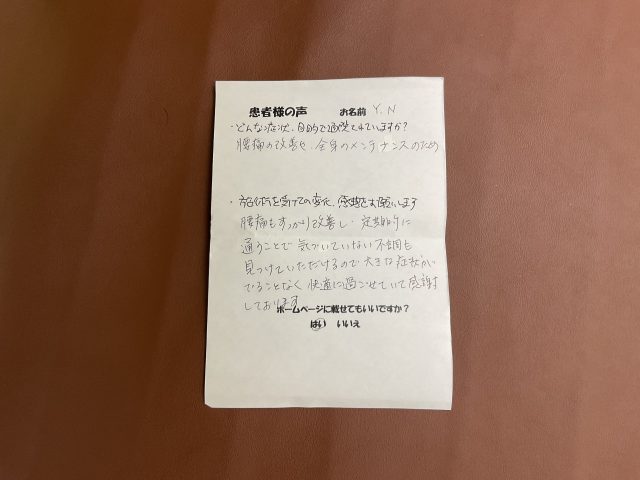 患者様の声　お名前 Y.N
・どんな症状、目的で通院されていますか?
腰痛の改善や、全身のメンテナンスのため
・施術を受けての変化、感想をお願いします
腰痛もすっかり改善し、定期的に
通うことで気づいていない不調も
見つけていただけるので大きな症状が
でることなく快適に過ごせていて感謝
しております
ホームページに載せてもいいですか?
はい　いいえ